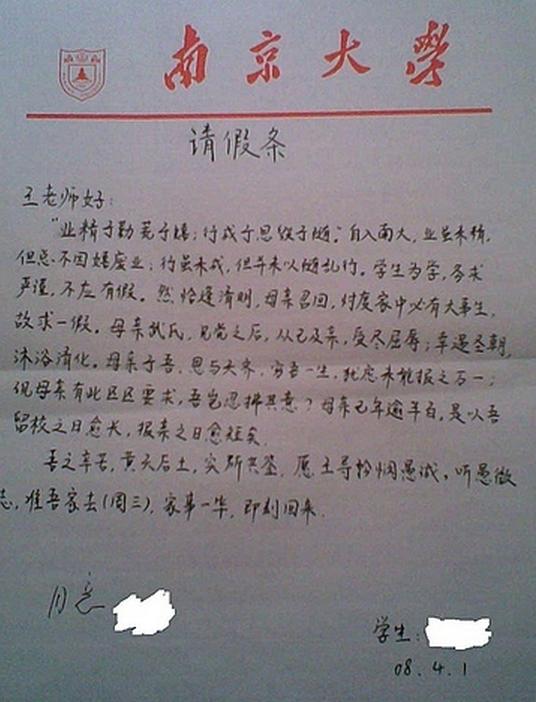 南京大學
请假条
王老师好：
"业精于勤荒于嬉；行成于思毁于随。"自入南大，业虽未精，
但总不因嬉废业；行虽未成，但并未以随乱行。学生为学，务求
严谨，不应有假。然恰逢清明，母亲召回，忖度家中必有大事生，
故求一假。母亲武氏，见党之后，从己及亲，受尽屈辱；幸遇圣朝，
沐浴清化。母亲于吾，恩与天齐，穷吾一生，犹恐未能报之万一；
况母亲有此区区要求，吾岂忍拂其意？母亲已年逾半百，是以吾
留校之日愈长，报亲之日愈短矣。
吾之辛苦，黄天后土，实所共鉴。愿王导矜悯愚诚，听愚微
志，准吾家去（周三），家事一毕，即刻回来。
同意
学生：
08.4.1